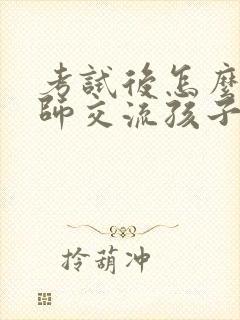 考試後怎麼
師交流孩子
拎葫冲